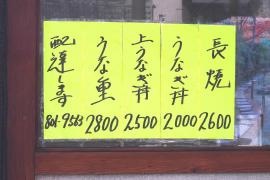 長焼
2600
うなぎ丼
2000
上うなぎ丼
2500
うな重
2800
配達します
801-9563